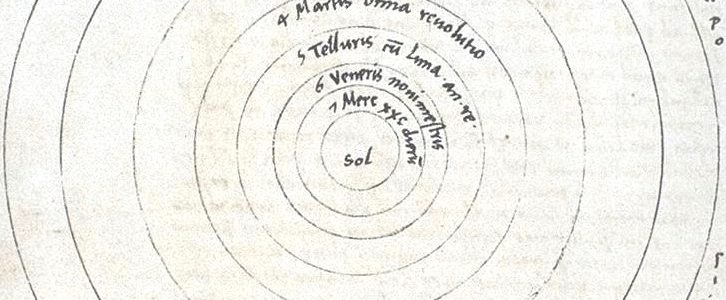 4 Martis bima revolutio
5 Telluris cū luna an re
6 Veneris nonimestris
7 Merc xxc dierū
Sol